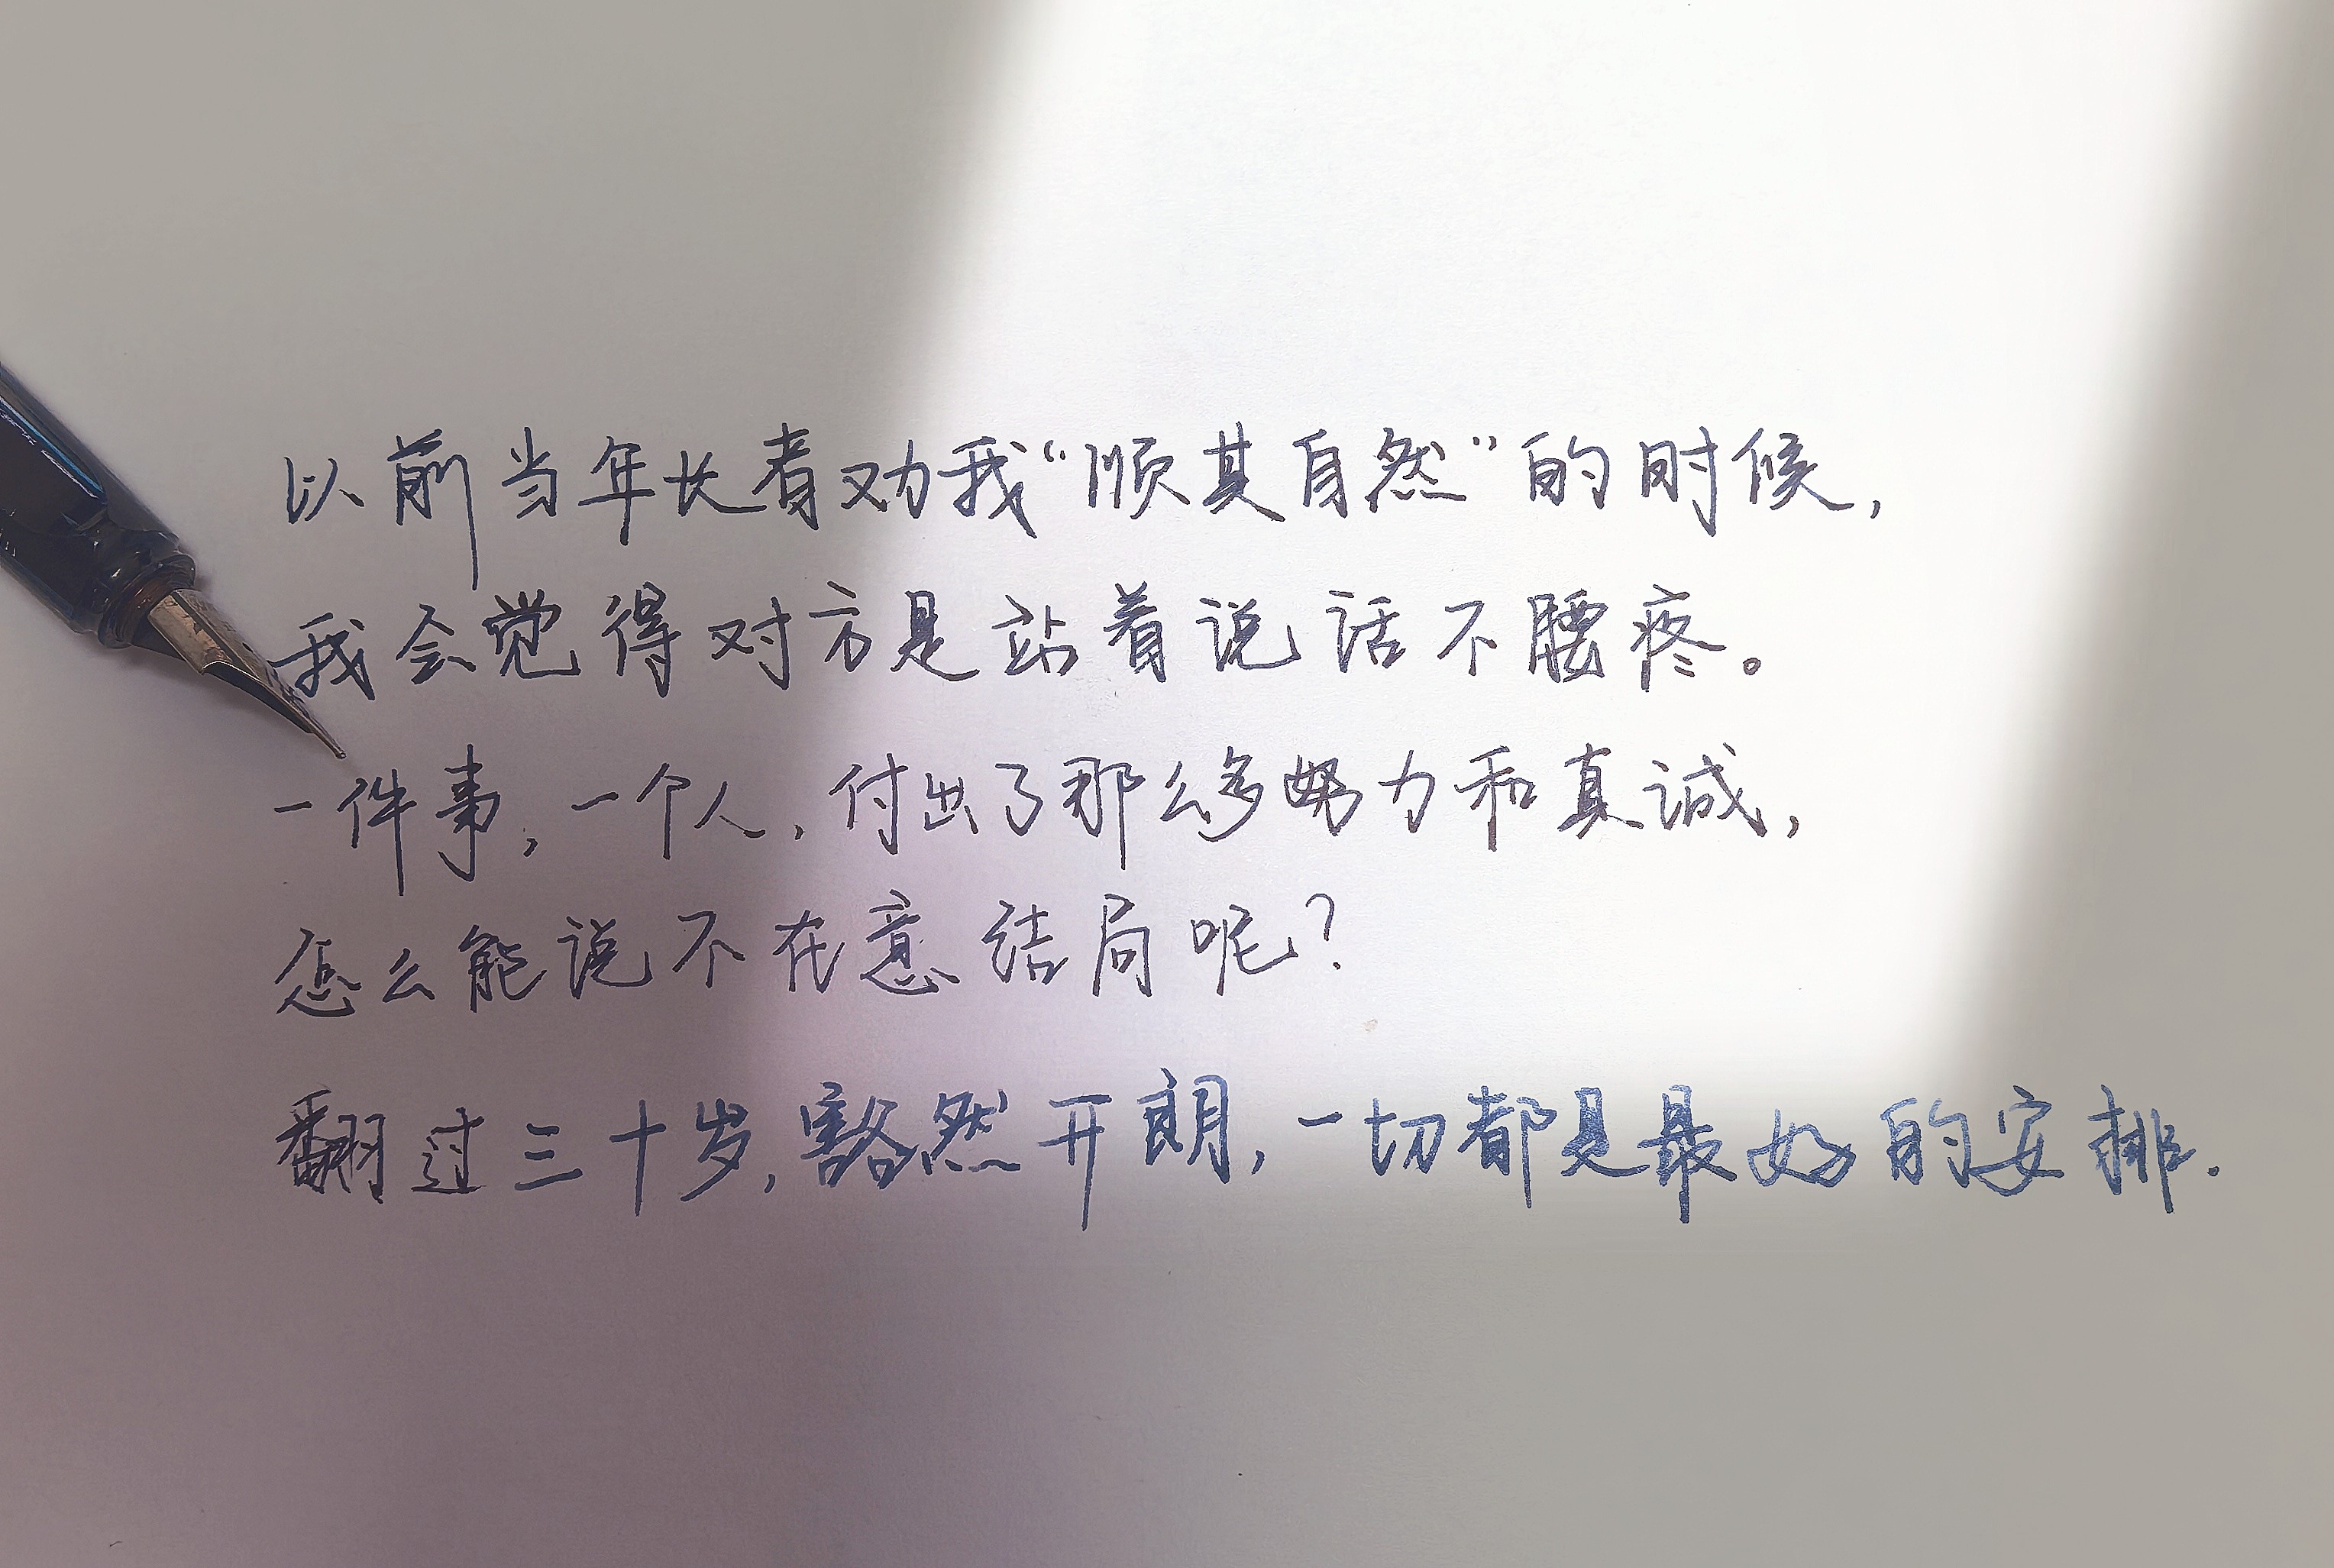 以前当年长者劝我“顺其自然”的时候，
我会觉得对方是站着说话不腰疼。
一件事，一个人，付出了那么多努力和真诚，
怎么能说不在意结局呢？
翻过三十岁，豁然开朗，一切都是最好的安排.